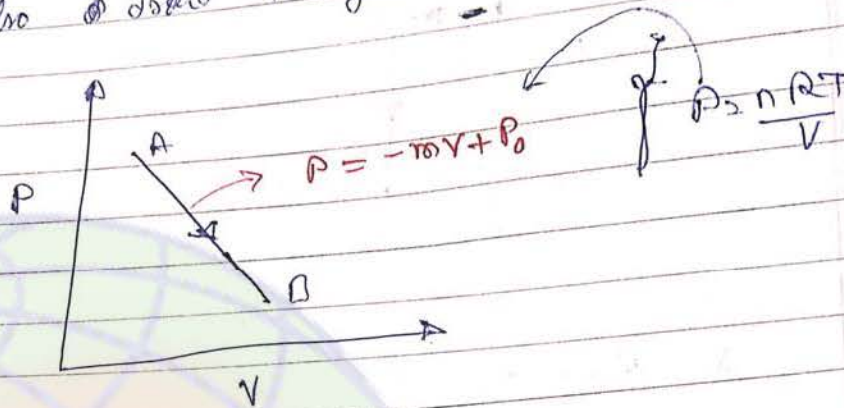 A
P = -mV + P₀
P = nRT
V
P
B
V